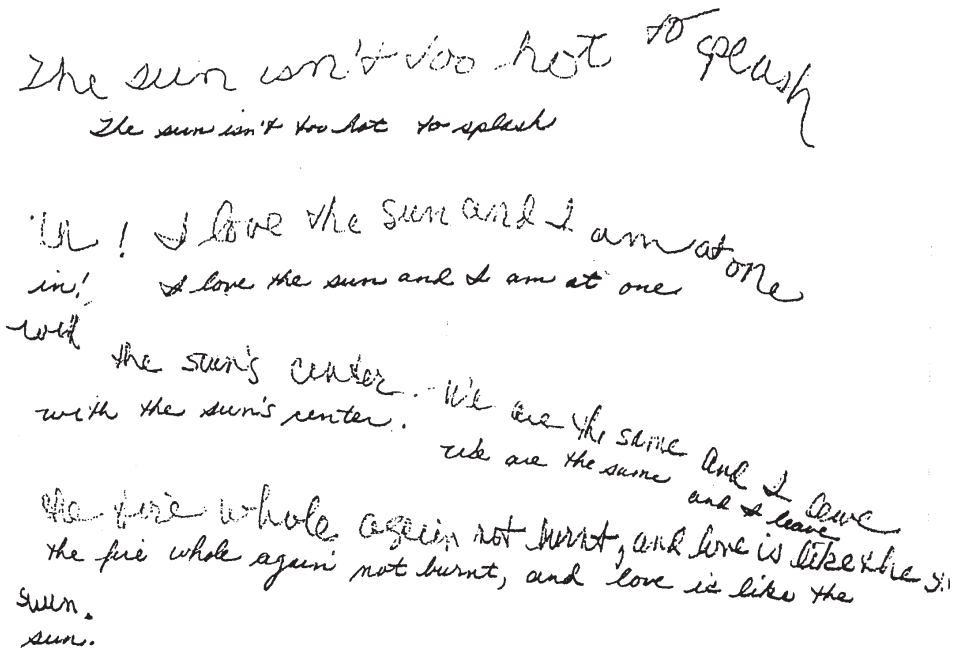 The sun isn't too hot to splash
The sun isn't too hot to splash
in! I love the sun and I am at one
in! I love the sun and I am at one
with
the sun's center. We are the same and I leave
with the sun's center. We are the same and I leave
the fire whole again not burnt, and love is like the
the fire whole again not burnt, and love is like the
sun.
sun.